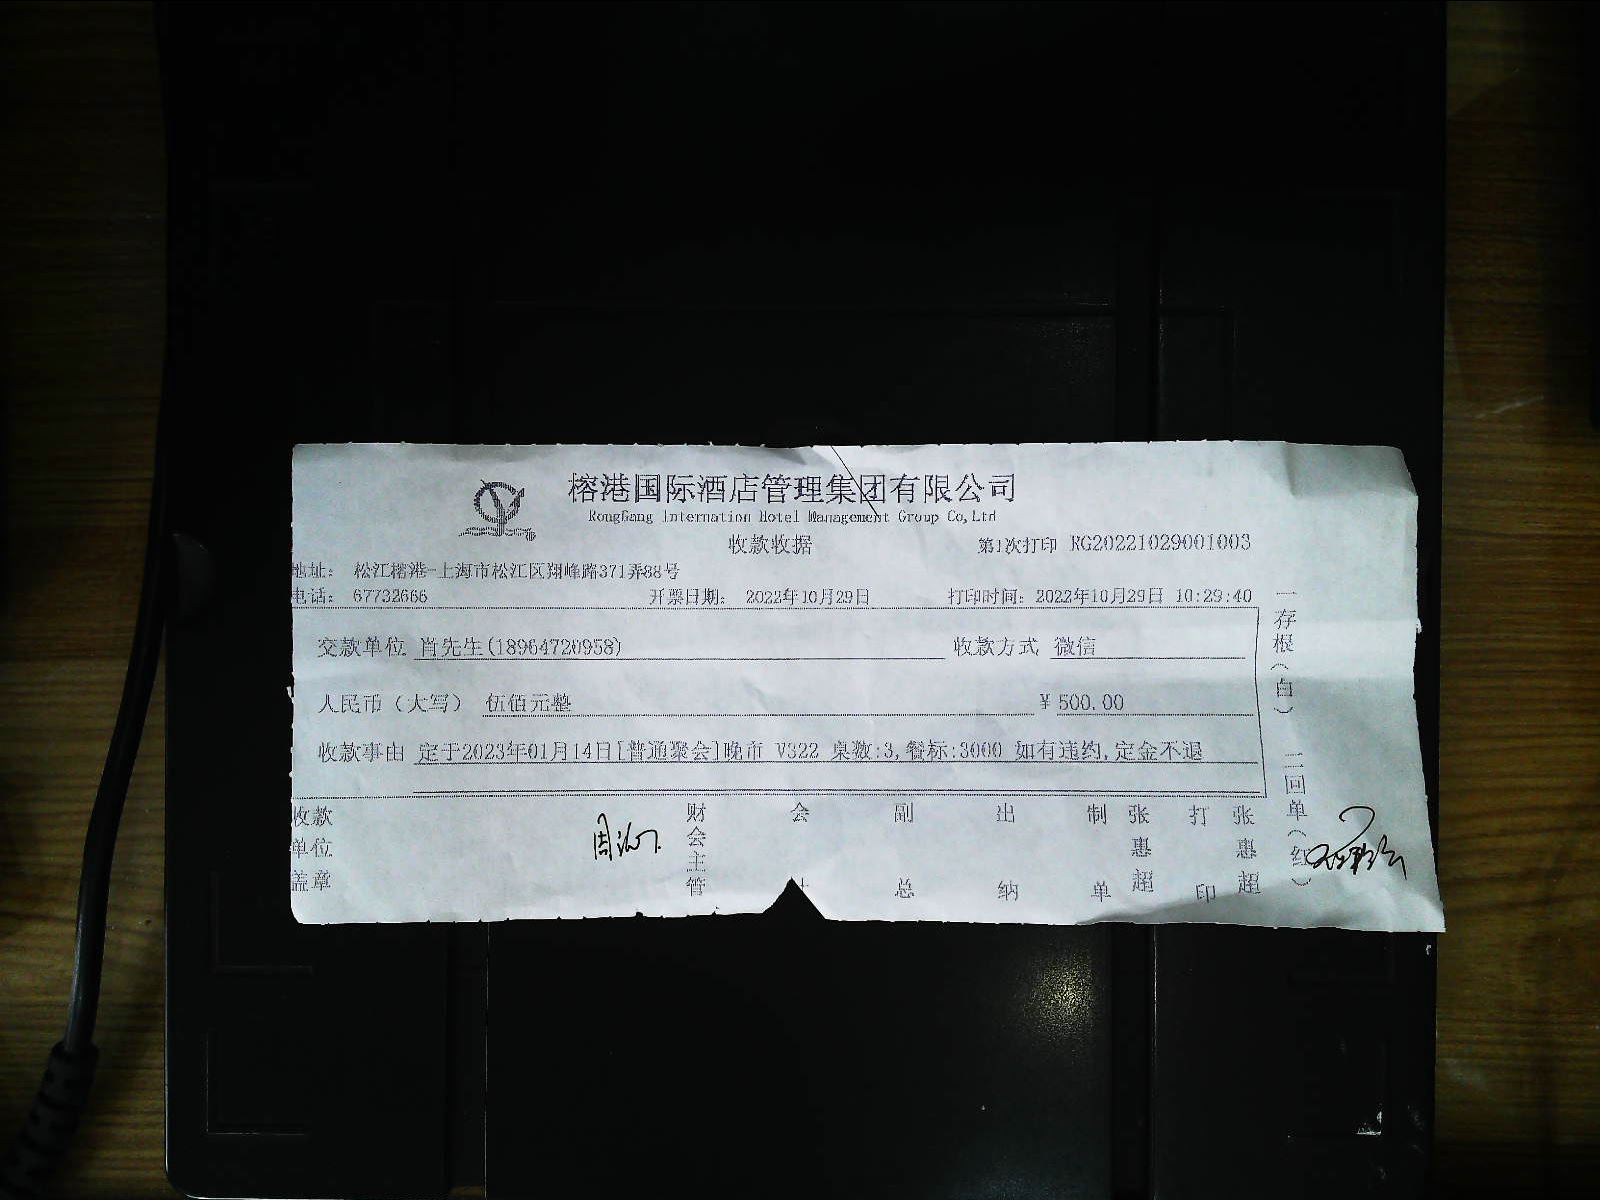 榕港国际酒店管理集团有限公司
RongGang Internation Hotel Management Group Co,Ltd
收款收据
第1次打印 RG20221029001003
地址： 松江榕港-上海市松江区翔峰路371弄88号
电话： 67732666 开票日期： 2022年10月29日 打印时间：2022年10月29日 10:29:40
交款单位 肖先生(18964720958) 收款方式 微信
人民币（大写） 伍佰元整 ￥500.00
收款事由 定于2023年01月14日[普通聚会]晚市 V322 桌数:3,餐标:3000 如有违约,定金不退
收款单位盖章
财会主管
会计
副总
出纳
制单 张惠超
打印 张惠超
一存根（白） 二回单（红）